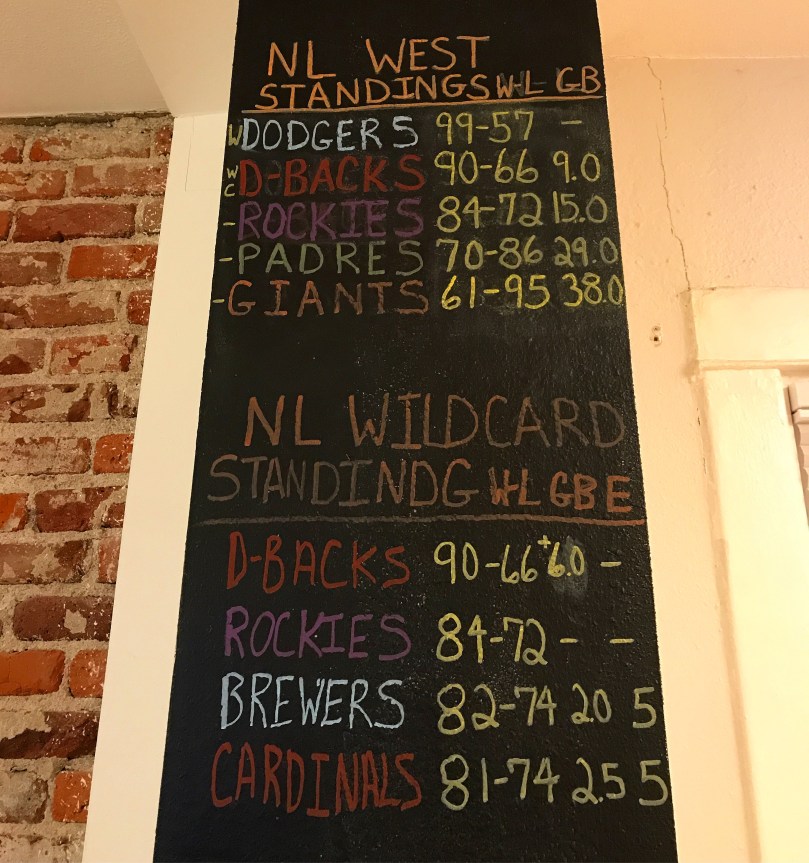 NL WEST
STANDINGS W-L GB
W DODGERS 99-57 -
WC D-BACKS 90-66 9.0
- ROCKIES 84-72 15.0
- PADRES 70-86 29.0
- GIANTS 61-95 38.0
NL WILDCARD
STANDINDG W-L GB E
D-BACKS 90-66 +6.0 -
ROCKIES 84-72 - -
BREWERS 82-74 2.0 5
CARDINALS 81-74 2.5 5